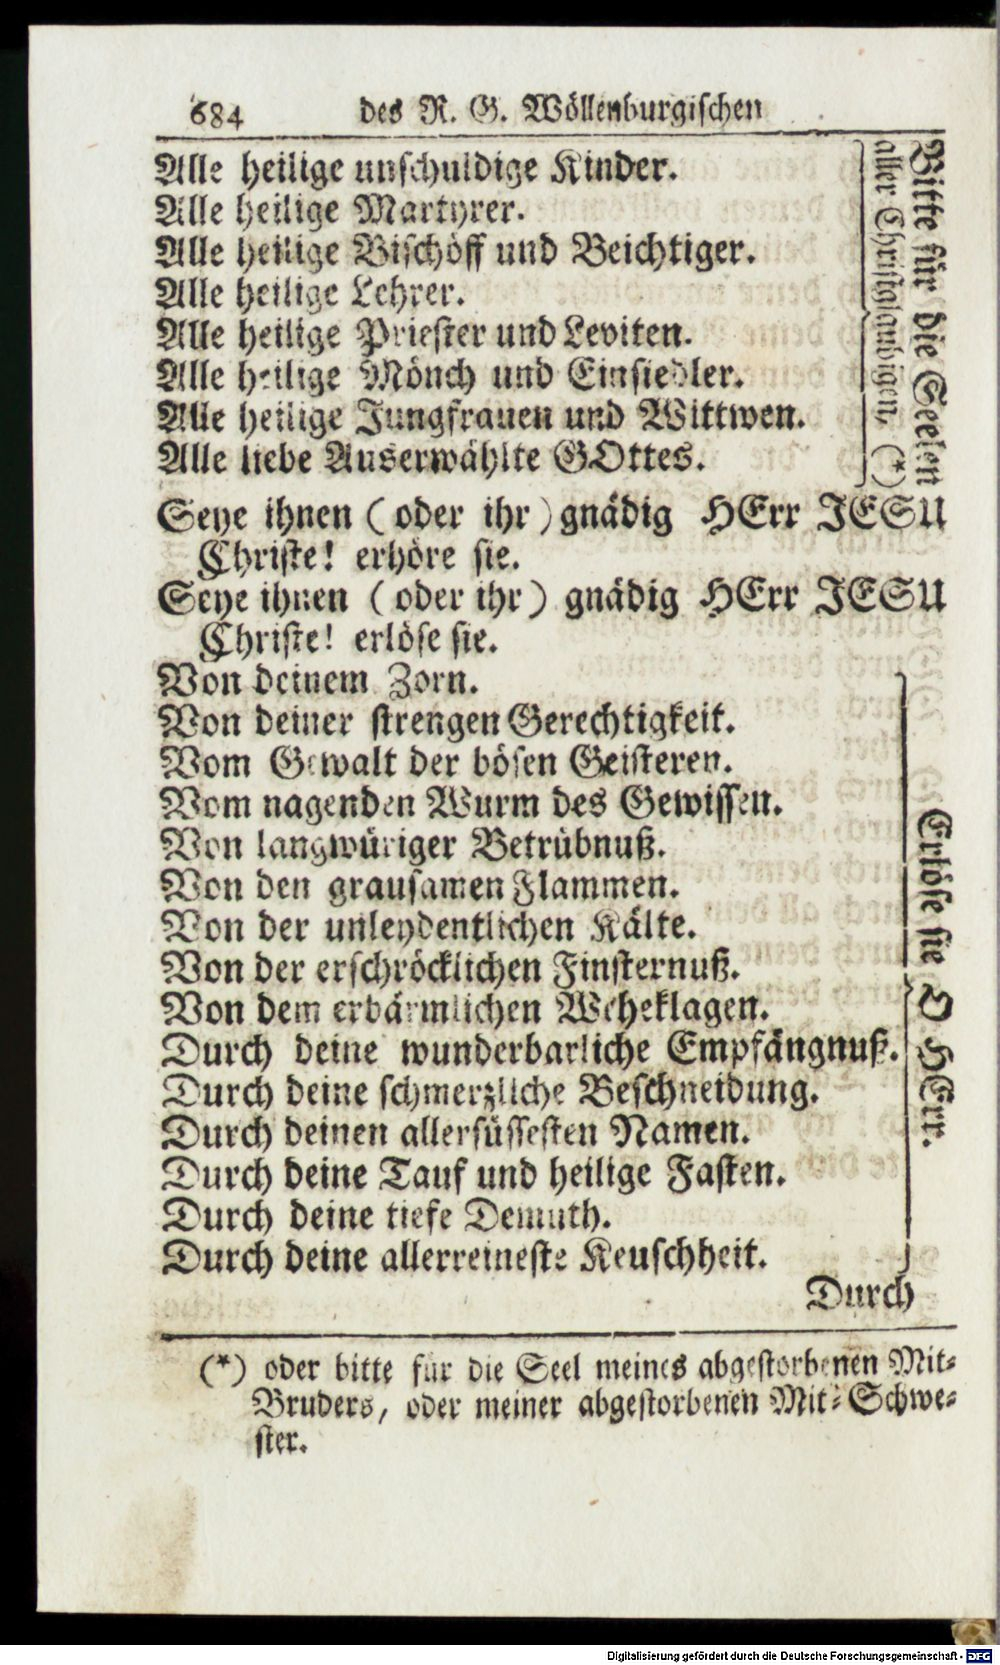 684 des R. G. Wöllenburgischen
Alle heilige unschuldige Kinder.
Alle heilige Martyrer.
Alle heilige Bischöff und Beichtiger.
Alle heilige Lehrer.
Alle heilige Priester und Leviten.
Alle heilige Mönch und Einsiedler.
Alle heilige Jungfrauen und Wittwen.
Alle liebe Auserwählte GOttes.
Bitte für die Seelen
aller Christglaubigen. (*)
Seye ihnen (oder ihr) gnädig HErr JESU
Christe! erhöre sie.
Seye ihnen (oder ihr) gnädig HErr JESU
Christe! erlöse sie.
Von deinem Zorn.
Von deiner strengen Gerechtigkeit.
Vom Gewalt der bösen Geisteren.
Vom nagenden Wurm des Gewissen.
Von langwüriger Betrübnuß.
Von den grausamen Flammen.
Von der unleydentlichen Kälte.
Von der erschröcklichen Finsternuß.
Von dem erbärmlichen Weheklagen.
Durch deine wunderbarliche Empfängnuß.
Durch deine schmerzliche Beschneidung.
Durch deinen allersüssesten Namen.
Durch deine Tauf und heilige Fasten.
Durch deine tiefe Demuth.
Durch deine allerreineste Keuschheit.
Erlöse sie O HErr.
Durch
(*) oder bitte für die Seel meines abgestorbenen Mit-
Bruders, oder meiner abgestorbenen Mit-Schwe-
ster.
Digitalisierung gefördert durch die Deutsche Forschungsgemeinschaft - DFG